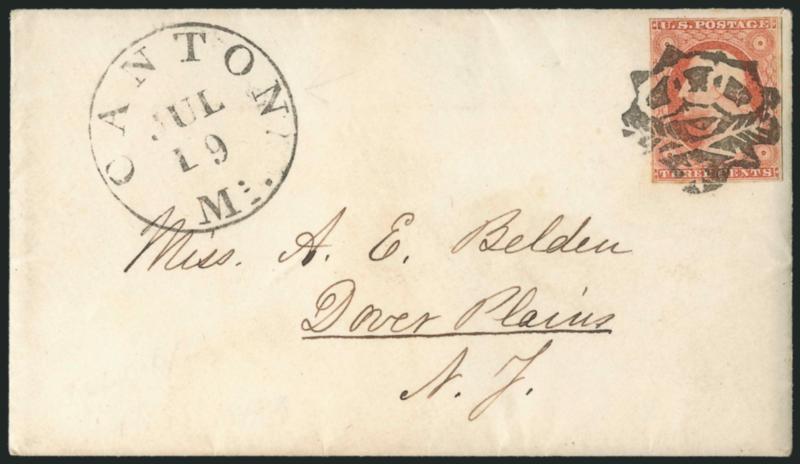 CANTON
JUL
19
Ms.
U.S. POSTAGE
THREE CENTS
Miss. A. E. Belden
Dover Plains
N. Y.